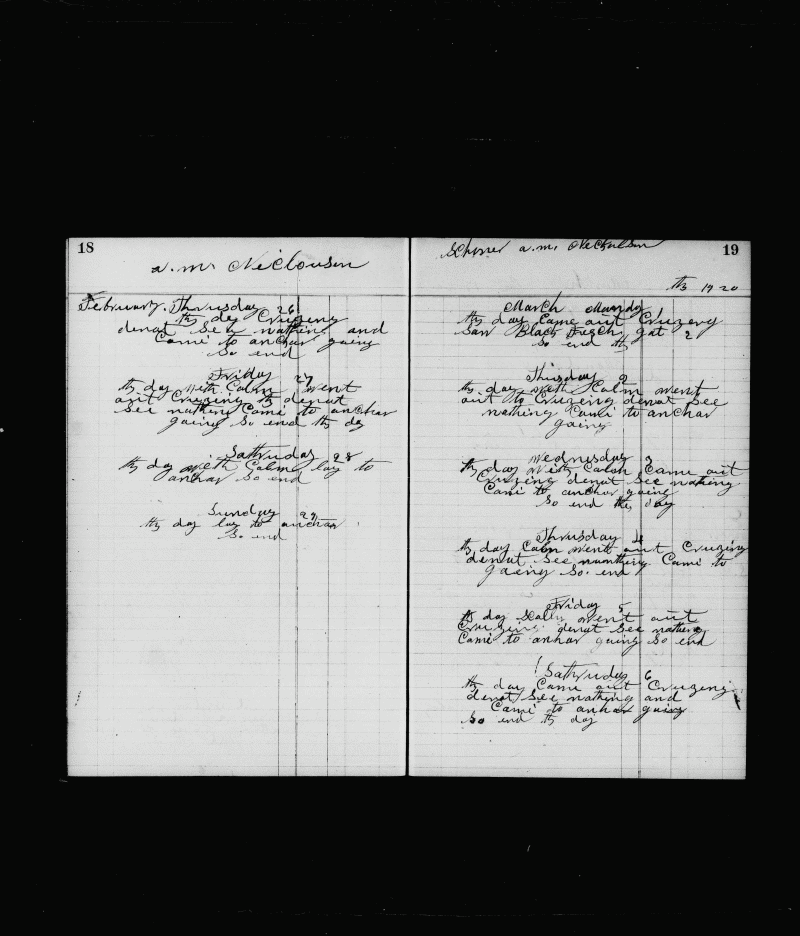 18
a. m. Niclousen
February. Thursday 26
th day Cruzeng
denat See nathing and
Came to anchar going
So end
Friday 27
th day with Calm went
out Cruzeng th denat
See nathing Came to anchar
going So end th day
Satturday 28
th day with Calm lay to
anchar So end
Sunday 29
th day lay to anchar
So end
Schoner a. m. Nickulsen
19
th 19 20
March Munday 1
th day Came out Cruzeng
Saw Black fugch gat 2
So end th
Thusday 2
th day with Calm went
out to Cruzeng denat See
nathing Came to anchar
going
Wednusday 3
th day with Calm Came out
Cruzeng denat See nathing
Came to anchar going
So end th day
Thrusday 4
th day Calm went out Cruzing
denat See nunthing Came to
gaeng So end
Friday 5
th day went out
Cruzing denat See nathing
Came to anhar going So end
Sathruday 6
th day Came out Cruzeng
denat See nathing and
Came to anhar going
So end th day